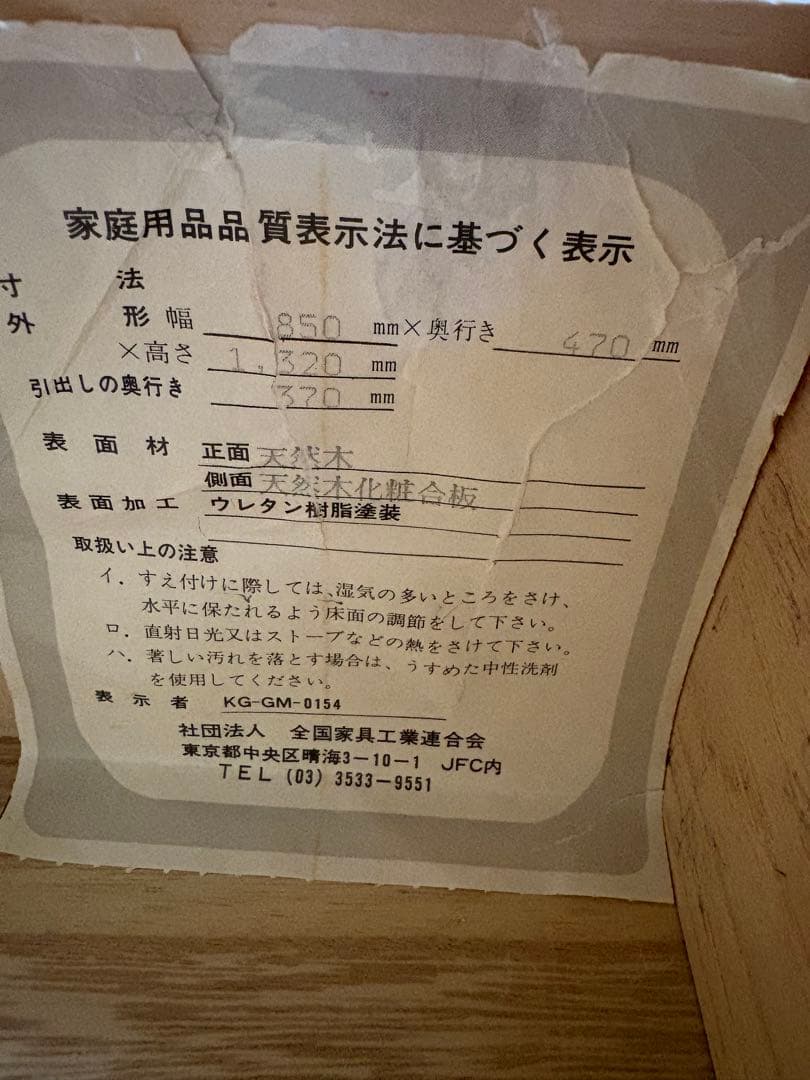 家庭用品品質表示法に基づく表示
寸法
外形 幅 850 mm×奥行き 470 mm
×高さ 1,320 mm
引出しの奥行き 370 mm
表面材 正面 天然木
側面 天然木化粧合板
表面加工 ウレタン樹脂塗装
取扱い上の注意
イ. すえ付けに際しては、湿気の多いところをさけ、
水平に保たれるよう床面の調節をして下さい。
ロ. 直射日光又はストーブなどの熱をさけて下さい。
ハ. 著しい汚れを落とす場合は、うすめた中性洗剤
を使用してください。
表示者 KG-GM-0154
社団法人 全国家具工業連合会
東京都中央区晴海3-10-1 JFC内
TEL (03) 3533-9551